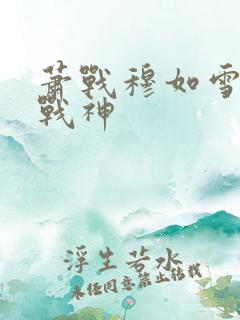 萧戰穆如雪
戰神
浮生若水
未经同意禁止转载